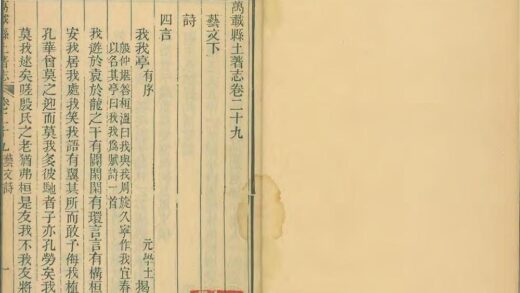 萬載縣土著志卷二十九
藝文下
詩
四言
我我亭 有序 元學士揭
殷仲堪答桓溫曰我與我周旋久寧作我宜春
以名其亭曰我我為賦詩一首
我遊於袁於龍之干有閑閑有環言言有構桓
安我居我處我笑我語有翼其所而敢予侮我植
孔華曾莫之迎而莫我多彼馳者子亦孔勞矣我
莫我逑矣嗟殷氏之老猶弗桓是友我不我友將
萬載縣土著志 卷二十九 藝文 詩 一